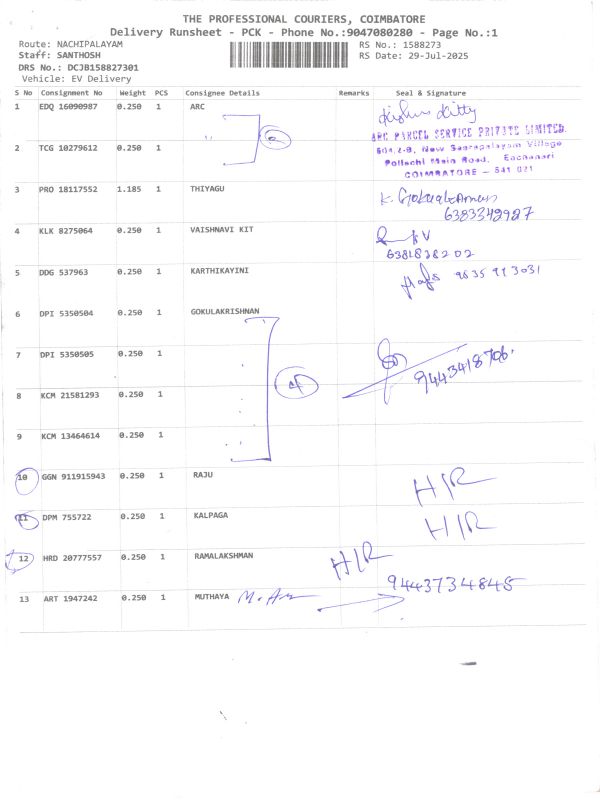 THE PROFESSIONAL COURIERS, COIMBATORE
Delivery Runsheet - PCK - Phone No.:9047080280 - Page No.:1
Route: NACHIPALAYAM
Staff: SANTHOSH
DRS No.: DCJB158827301
Vehicle: EV Delivery
RS No.: 1588273
RS Date: 29-Jul-2025
S No Consignment No Weight PCS Consignee Details Remarks Seal & Signature
1 EDQ 16090987 0.250 1 ARC
2
ARC PARCEL SERVICE PRIVATE LIMITED.
2 TCG 10279612 0.250 1
Pollachi Main Road, Eachanari
COIMBATORE - 641 021
3 PRO 18117552 1.185 1 THIYAGU
6383342927
4 KLK 8275064 0.250 1 VAISHNAVI KIT
5 DDG 537963 0.250 1 KARTHIKAYINI
6 DPI 5350504 0.250 1 GOKULAKRISHNAN
7 DPI 5350505 0.250 1
9443418706
4
8 KCM 21581293 0.250 1
9 KCM 13464614 0.250 1
10 GGN 911915943 0.250 1 RAJU H/R
11 DPM 755722 0.250 1 KALPAGA H/R
12 HRD 20777557 0.250 1 RAMALAKSHMAN H/R
9443734845
13 ART 1947242 0.250 1 MUTHAYA